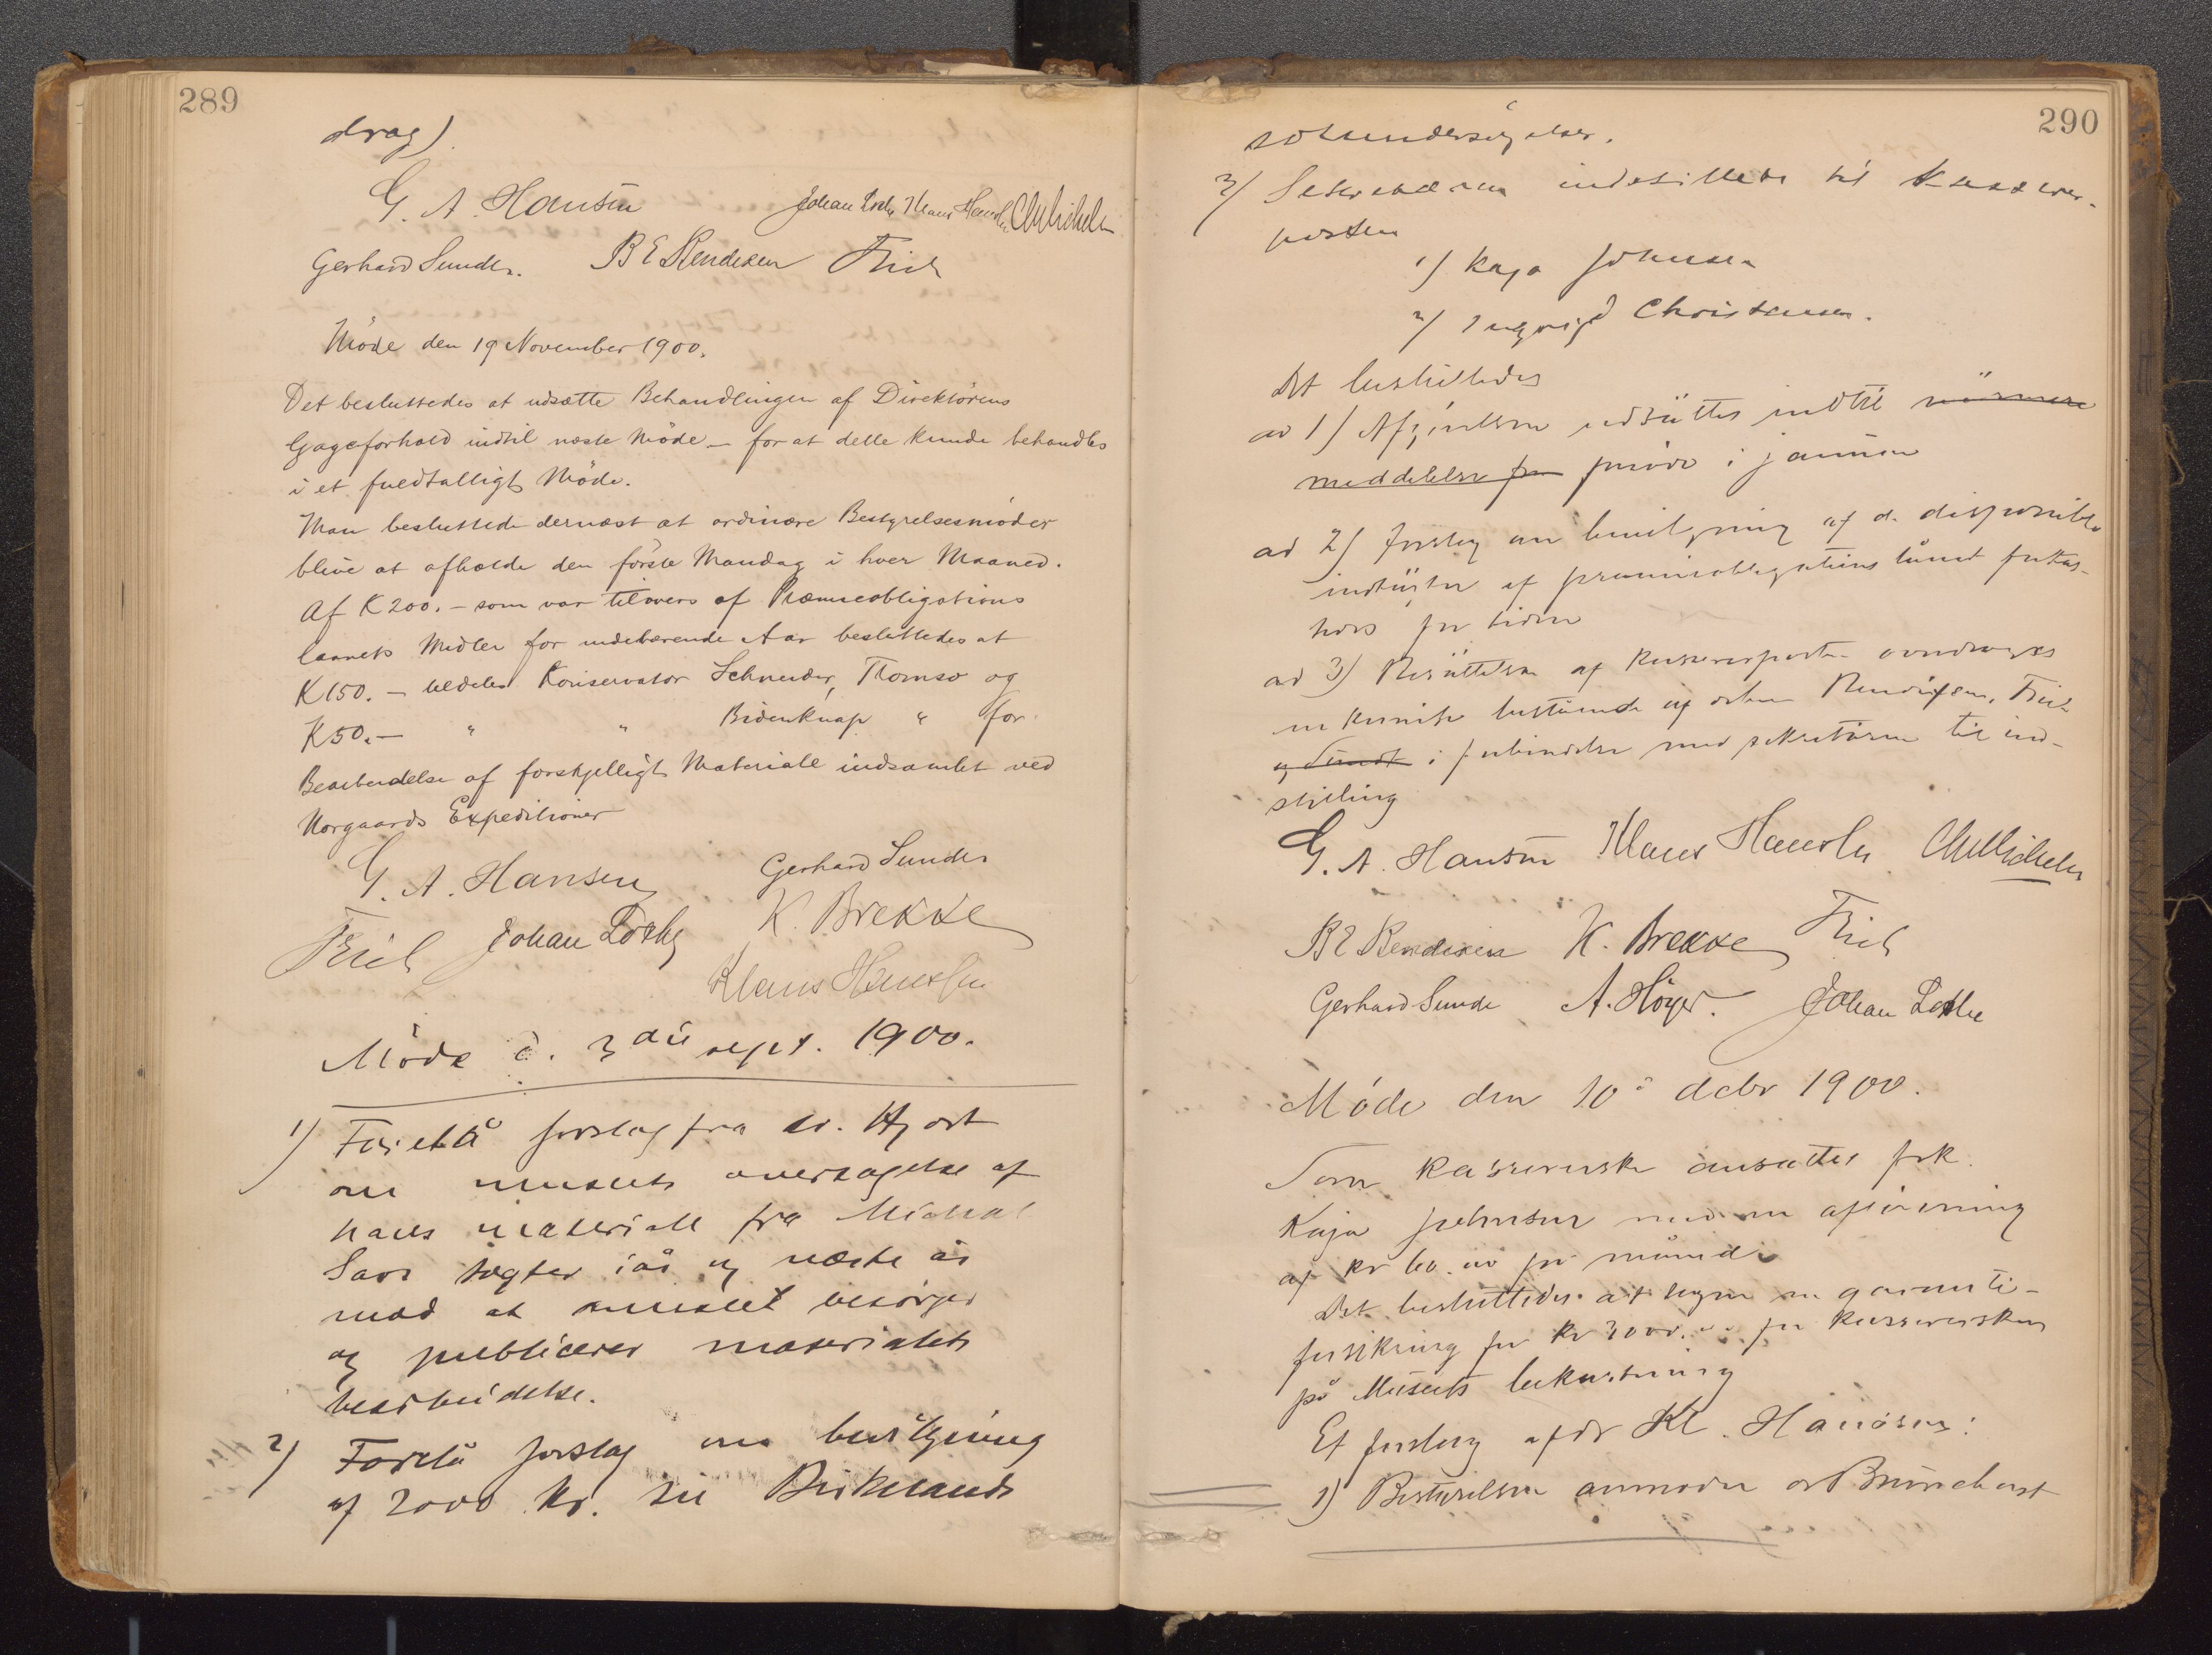 289
drag).
G. A. Hansen Johan Lothe Klaus Hanssen
Gerhard Sunde. B E Bendixen Friele
Møde den 19 November 1900.
Det besluttedes at udsætte Behandlingen af Direktørens
Gageforhold indtil næste Møde – for at dette kunde behandles
i et fuldtalligt Møde.
Man besluttede dernæst at ordinære Bestyrelsesmøder
blive at afholde den første Mandag i hver Maaned.
Af K 200.– som var tilovers af Præmieobligations
laanets Midler for indeværende Aar besluttedes at
K 150.– tildeles Konservator Schneider, Tromsø og
K 50.– " " Bidenknap " for
Bearbeidelse af forskjelligt Materiale indsamlet ved
Norgaards Expeditioner
G. A. Hansen Gerhard Sunde
Friele Johan Lothe K. Brekke
Klaus Hanssen
Møde d. 3die sept. 1900.
1) Forelå forslag fra dr. Hjort
om museets overtagelse af
hans materiale fra Michael
Sars togter iår og næste år
mod at museet besørger
og publicerer materialets
bearbeidelse.
2) Forelå forslag om bevilgning
af 2000 kr. til Birkelands
290
3) Sekretæren indstillede til kasserer-
posten
1) Kaja Johnsen
2) Ingrid Christensen.
Det besluttedes
ad 1) Afgjørelsen udsættes indtil nærmere
meddelelse fra møde i januar
ad 2) Forslag om bevilgning af de disponible
indtægter af præmieobligationslånet
for tiden
ad 3) Besættelsen af kassererposten overdrages
en komite bestående af Bendixen, Friele
og Sunde i forbindelse med sekretæren til ind-
stilling
G. A. Hansen Klaus Hanssen
B E Bendixen K. Brekke Friele
Gerhard Sunde A. Høyer. Johan Lothe
Møde den 10de debr 1900.
Som kassererske ansattes frk.
Kaja Johnsen med en aflønning
af kr 60.00 pr måned
Det besluttedes at tegne en garanti-
forsikring for kr 3000.00 for kassererskens
på Museets bekostning
Et forslag af dr Kl. Hanssen:
1) Bestyrelsen anmoder dr Brunchorst